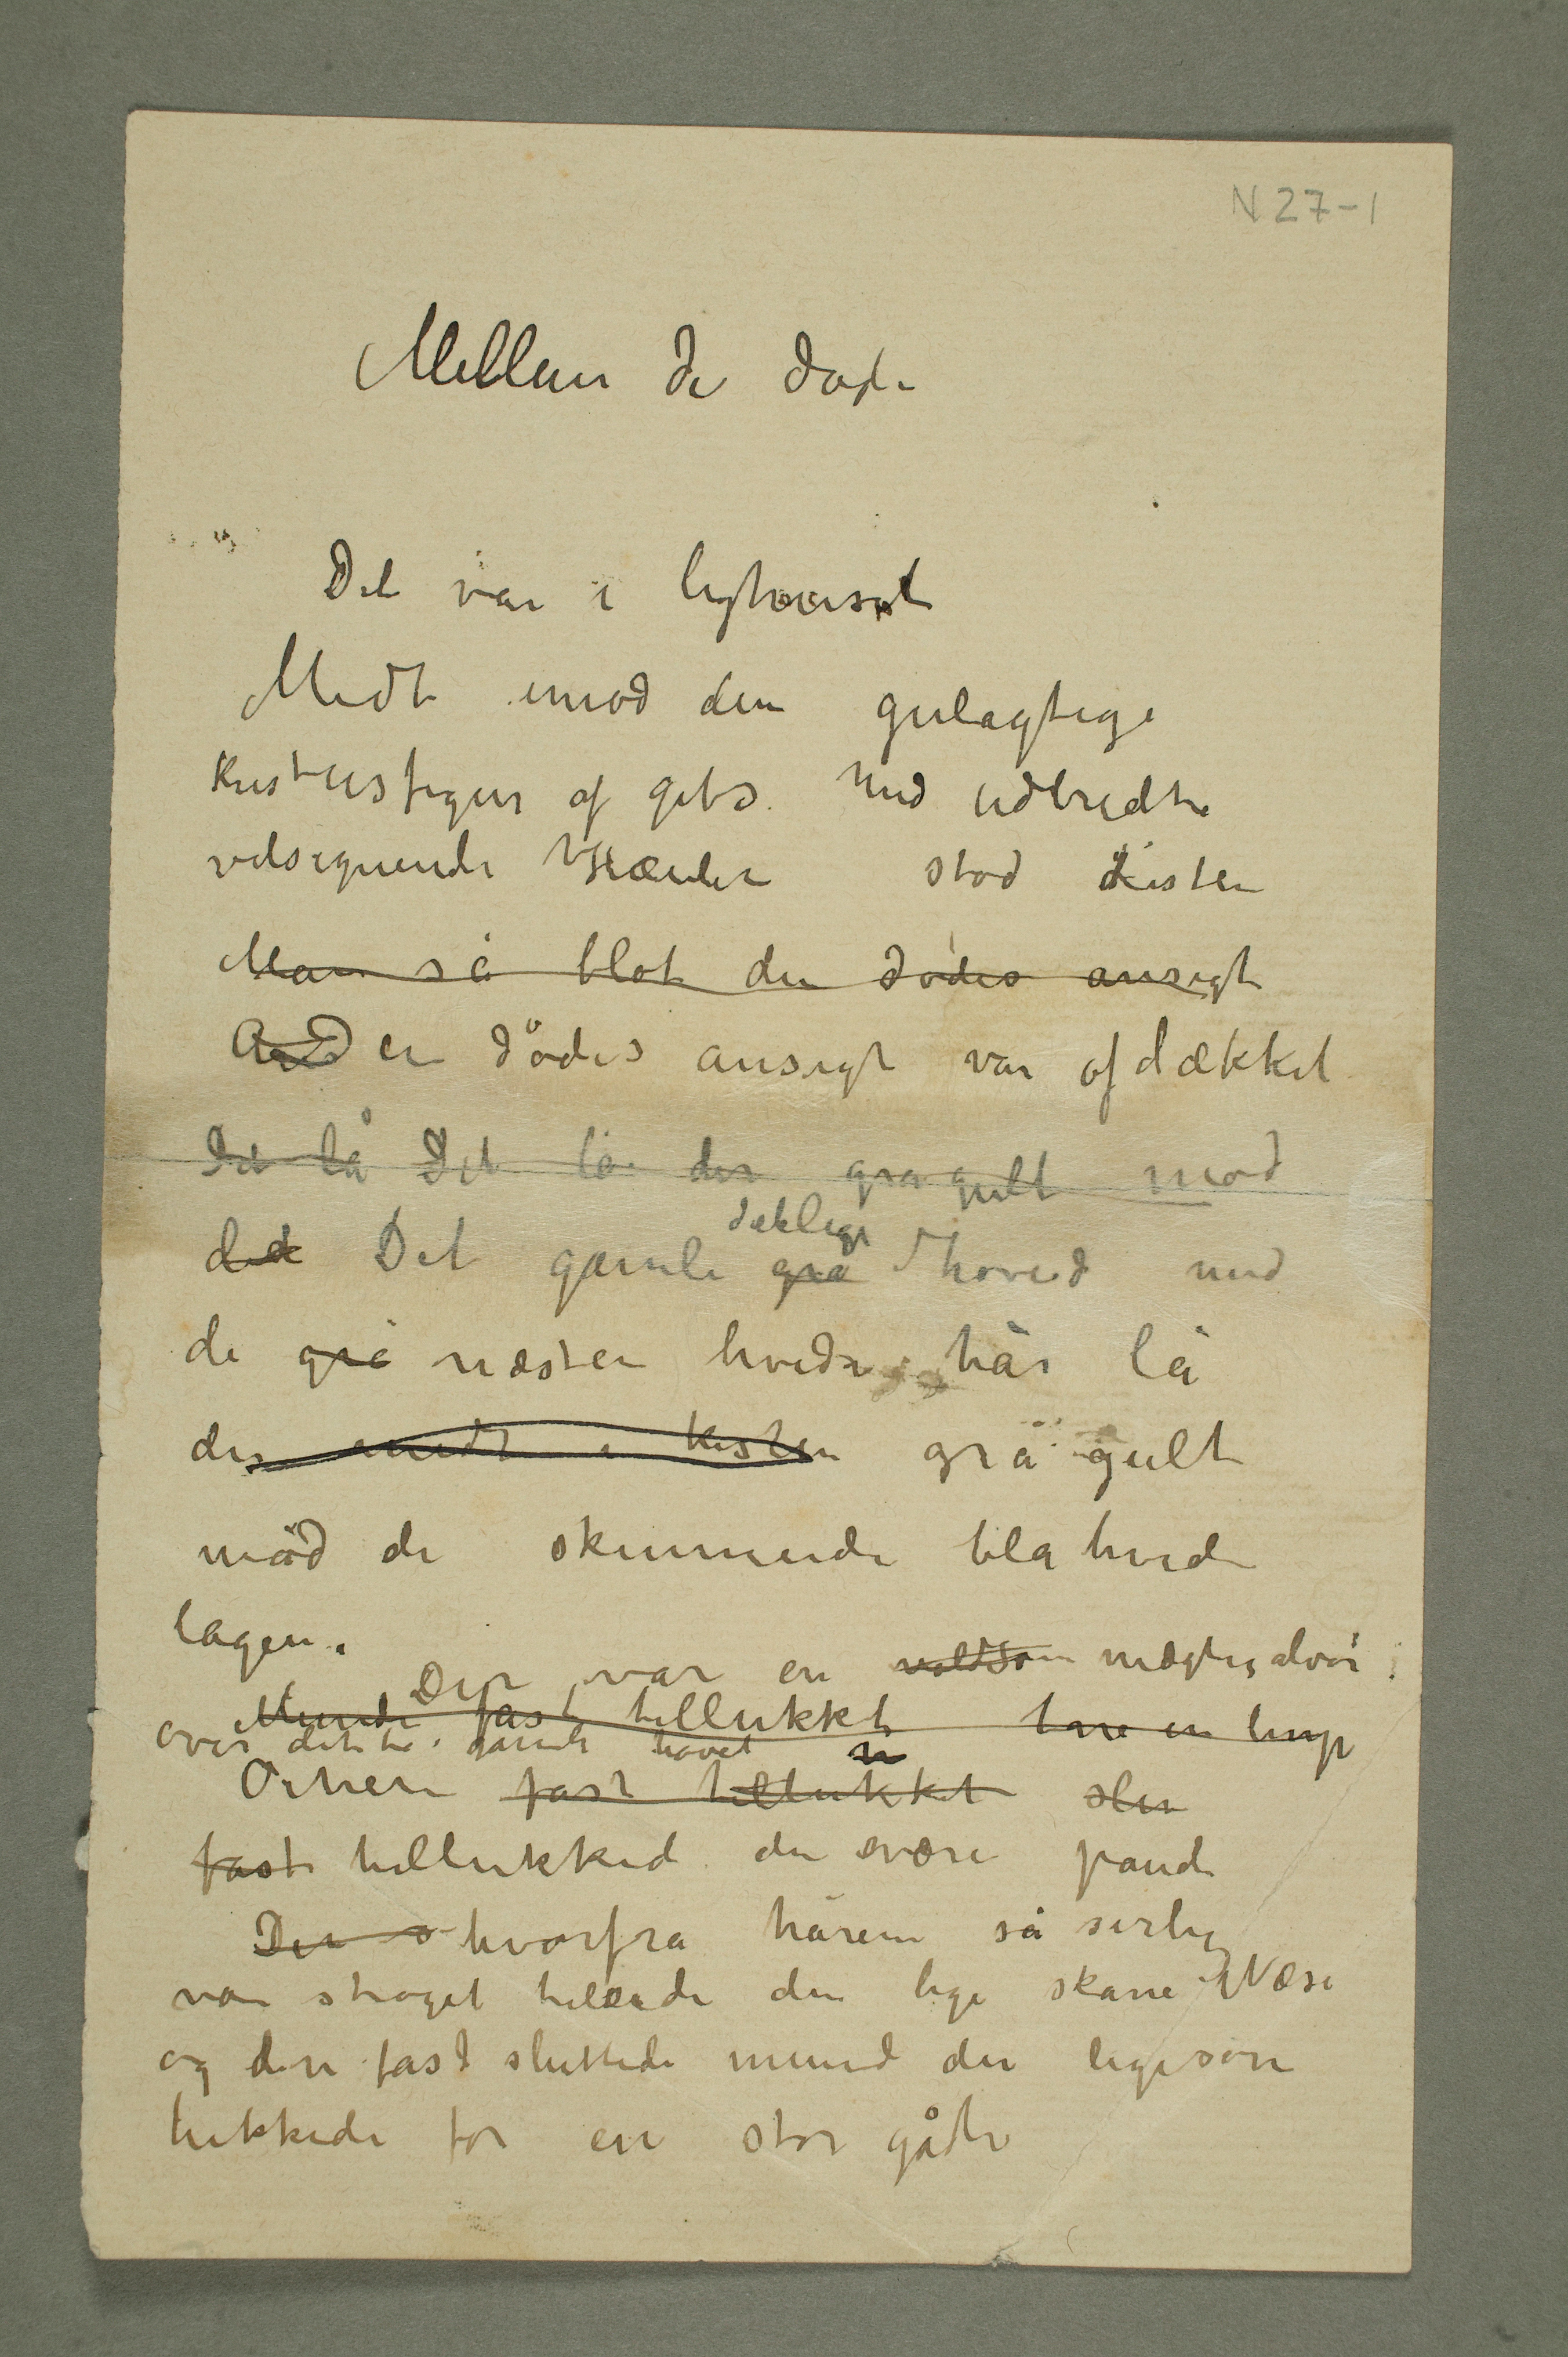 N 27-1
Mellem de døde
Det var i lighuset
Midt imod den gulagtige
Kristusfigur af gibs med udbredte
velsignende Hænder stod kisten
Man så blot den dødes ansigt
Den dødes ansigt var afdækket
Det lå Det lå der grågult mod
det Det gamle grå dæklige hoved med
de grå næsten hvide hår lå
der midt i kisten grågult
mod de skinnende blåhvide
lagen.
Der var en voldsom mægtig alvor
Munde fast tillukket
over dette gamle hovet
Øinene fast tillukket
fast tillukked den svære pande
Den s hvorfra hårene så sirlig
var strøget tilside den lige skarre Næse
og den fast sluttede mund der ligesom
lukkede for en stor gåde